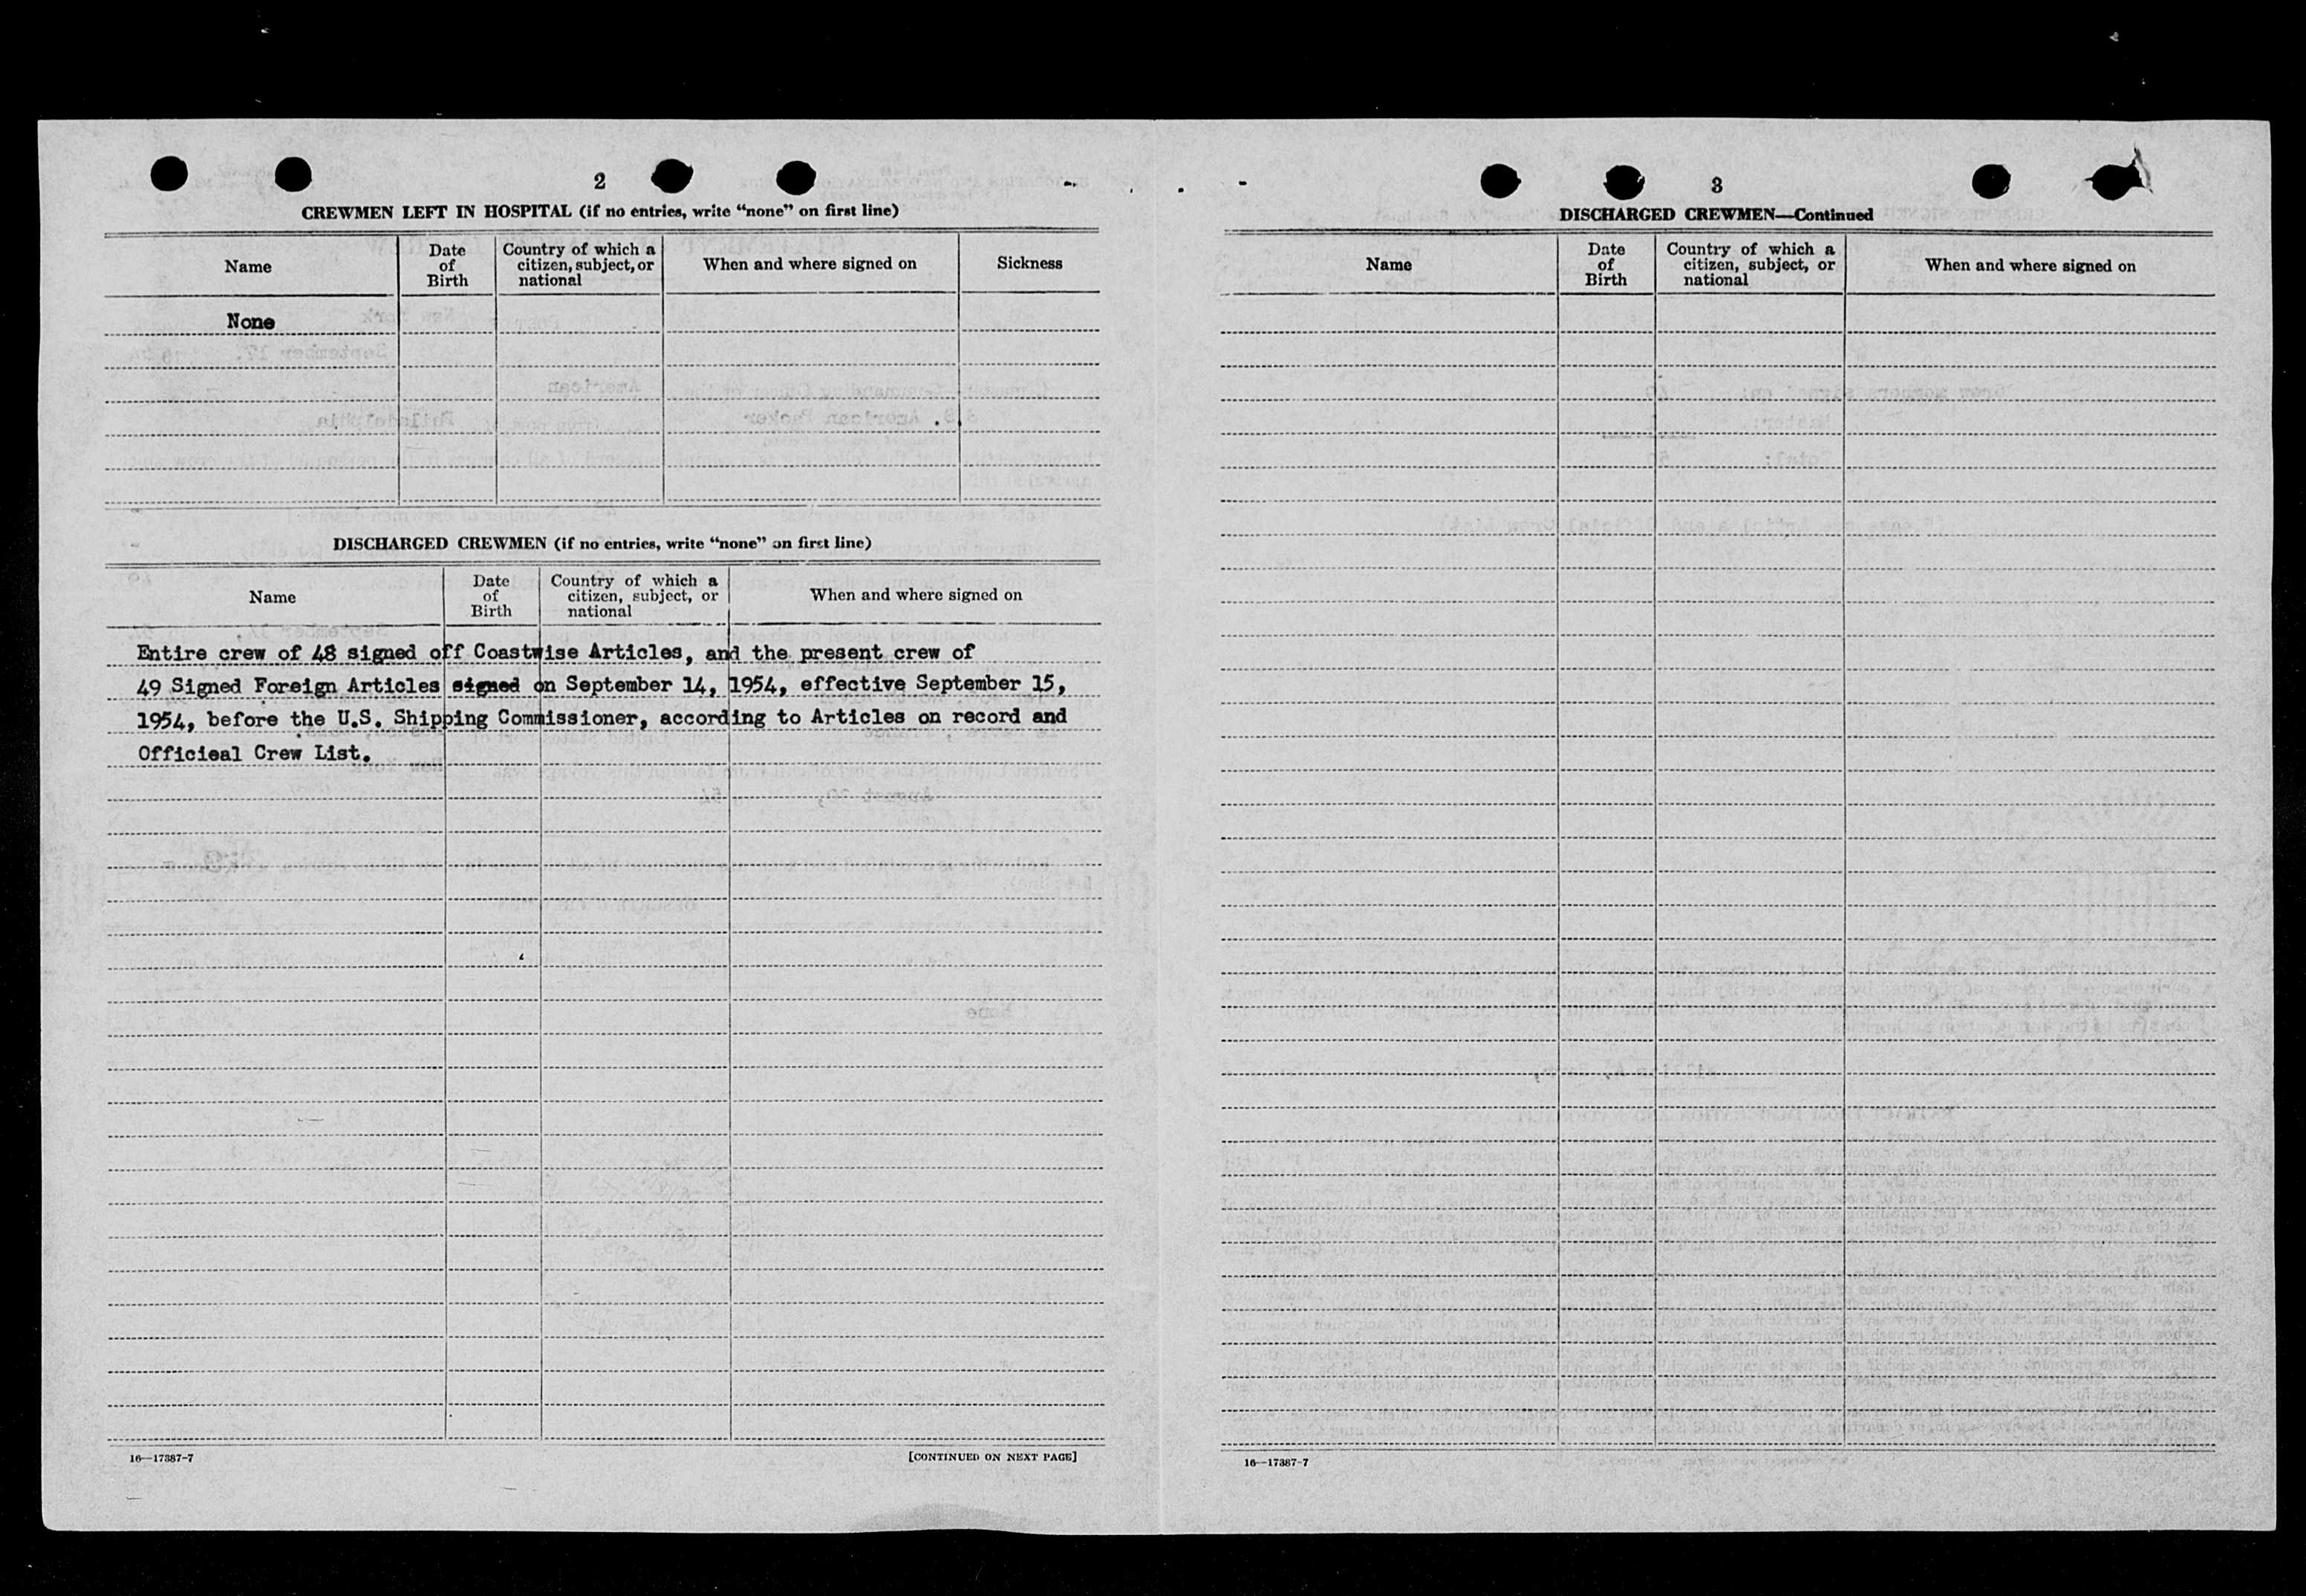 2
CREWMEN LEFT IN HOSPITAL (if no entries, write “none” on first line)
Name
Date of Birth
Country of which a citizen, subject, or national
When and where signed on
Sickness
None
DISCHARGED CREWMEN (if no entries, write “none” on first line)
Name
Date of Birth
Country of which a citizen, subject, or national
When and where signed on
Entire crew of 48 signed off Coastwise Articles, and the present crew of
49 Signed Foreign Articles signed on September 14, 1954, effective September 15,
1954, before the U.S. Shipping Commissioner, according to Articles on record and
Officieal Crew List.
16—17387-7
[CONTINUED ON NEXT PAGE]
3
DISCHARGED CREWMEN—Continued
Name
Date of Birth
Country of which a citizen, subject, or national
When and where signed on
16—17387-7